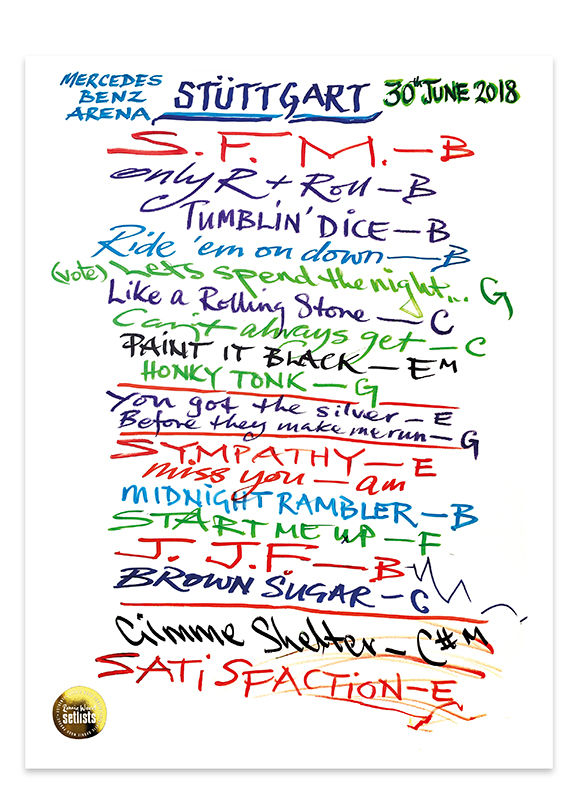 MERCEDES
BENZ
ARENA
STÜTTGART
30th JUNE 2018
S.F.M. - B
only R + Roll - B
TUMBLIN' DICE - B
Ride 'em on down - B
(vote) Let's spend the night... G
Like a Rolling Stone - C
Can't always get - C
PAINT IT BLACK - EM
HONKY TONK - G
You got the silver - E
Before they make me run - G
SYMPATHY - E
miss you - am
MIDNIGHT RAMBLER - B
START ME UP - F
J.J.F. - B
BROWN SUGAR - G
Gimme Shelter - C#M
SATiSFACTiON - E
Ronnie Wood
setlists